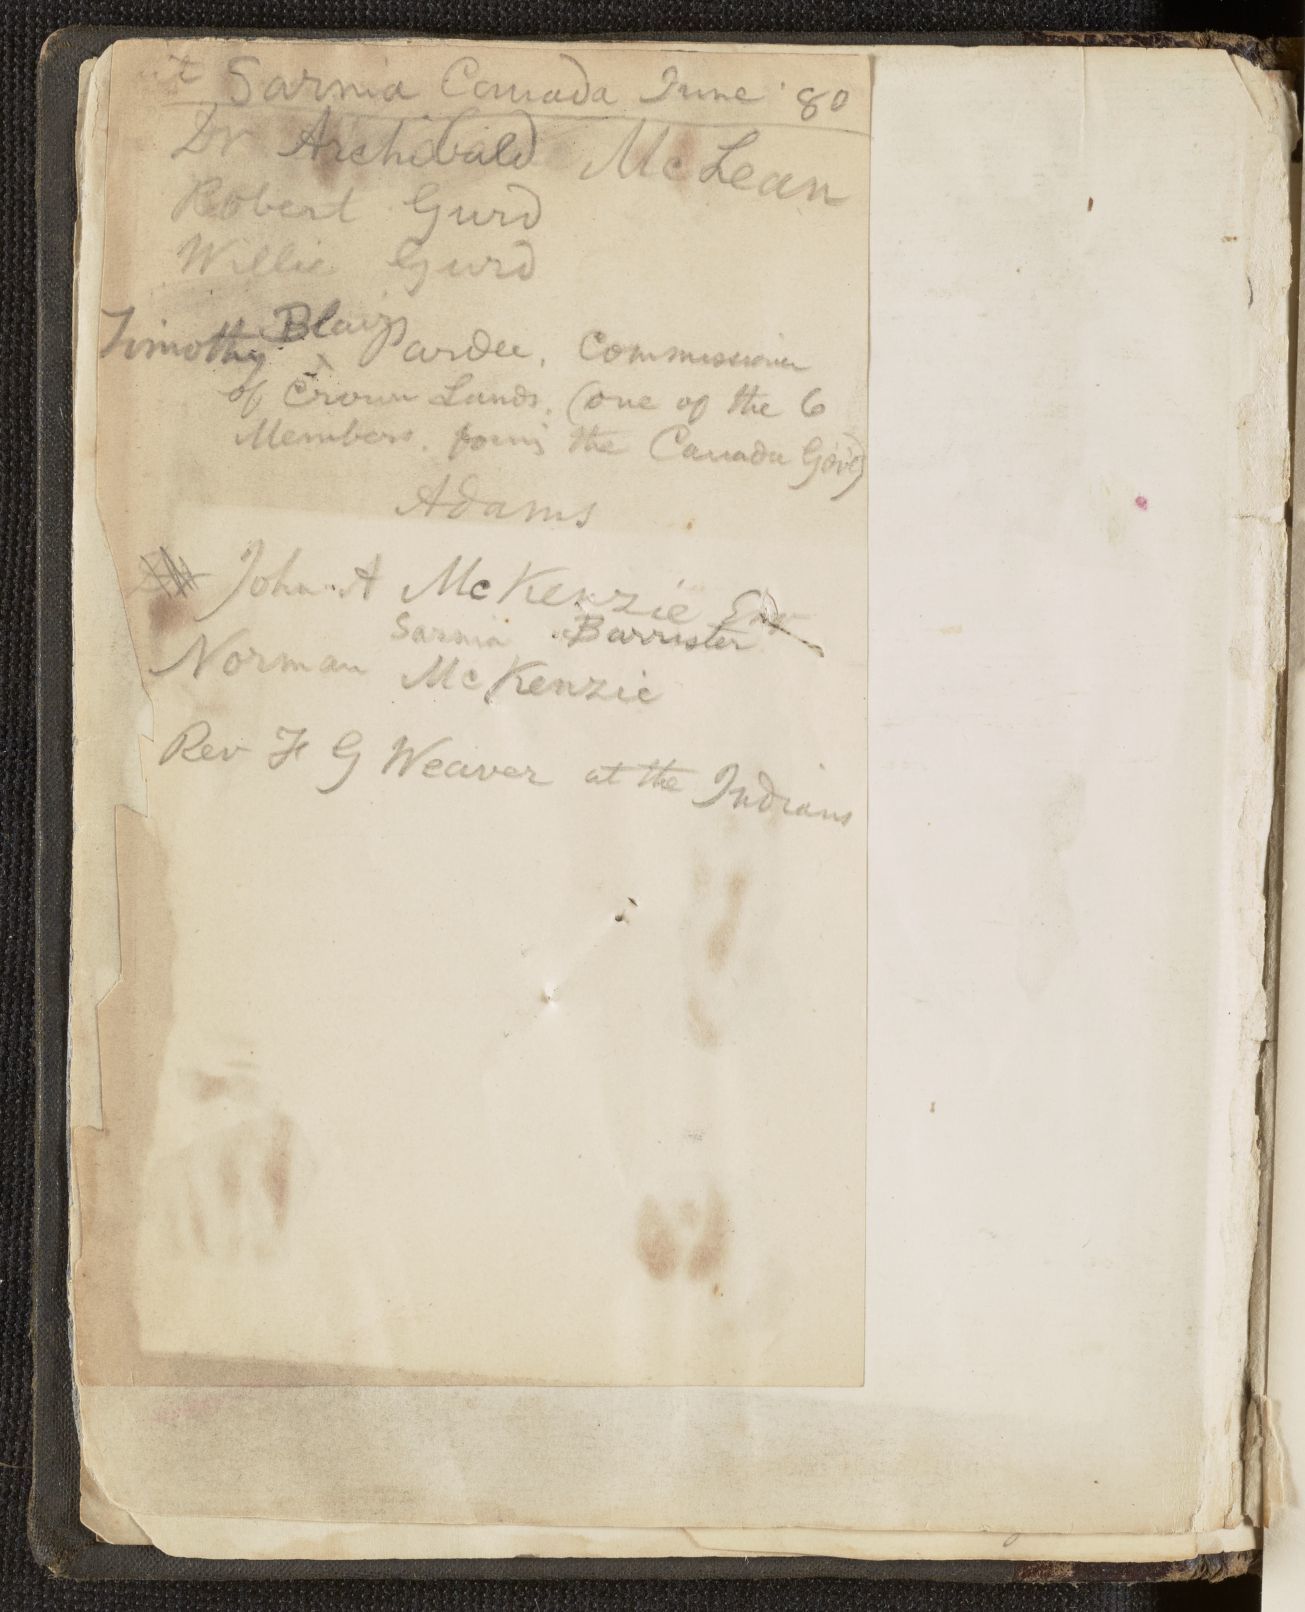 at Sarnia Canada June '80
Dr Archibald McLean
Robert Gurd
Willie Gurd
Timothy Blair Pardee. Commissioner
of Crown Lands. (one of the 6
Members. form'g the Canada Gov't)
Adams
John A McKenzie Esq
Sarnia Barrister
Norman McKenzie
Rev F G Weaver at the Indians